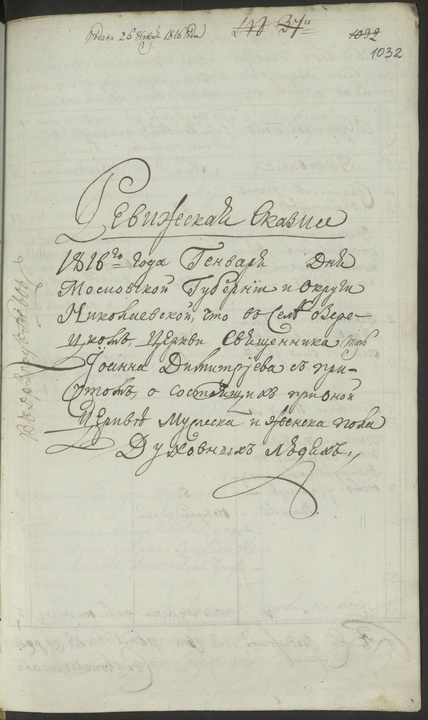 1816 года
№ 37
1032
1032
Ревижская Сказка
1816го года Генваря Дня
Московской Губернiи и Округи
Николаевской, что в Селѣ Озере-
цкомъ, Церкви Священника
Iоанна Димитрiева съ при-
чтомъ, о состоящихъ при оной
Церквѣ Мужеска и женска пола
Духовныхъ людехъ,